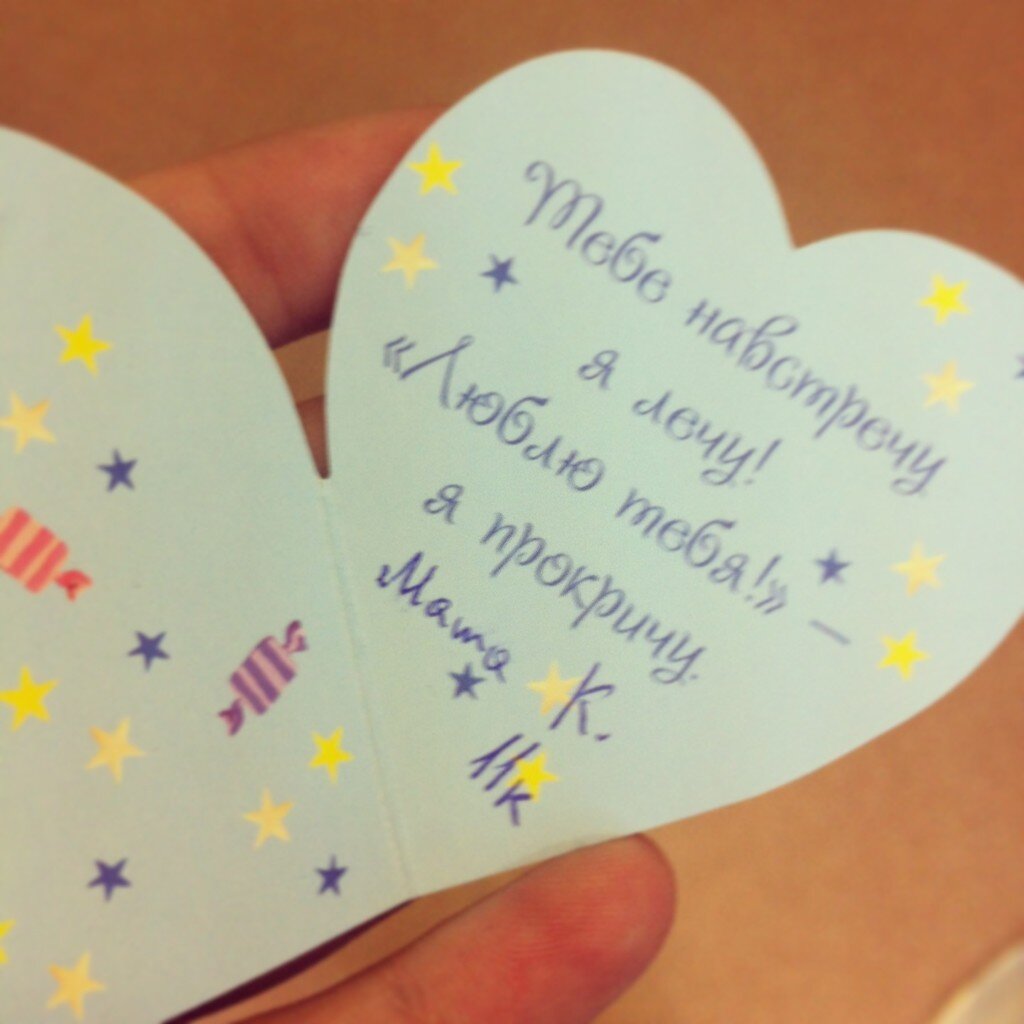 Тебе навстречу
я лечу!
«Люблю тебя!» –
я прокричу.
Мата К.
11к